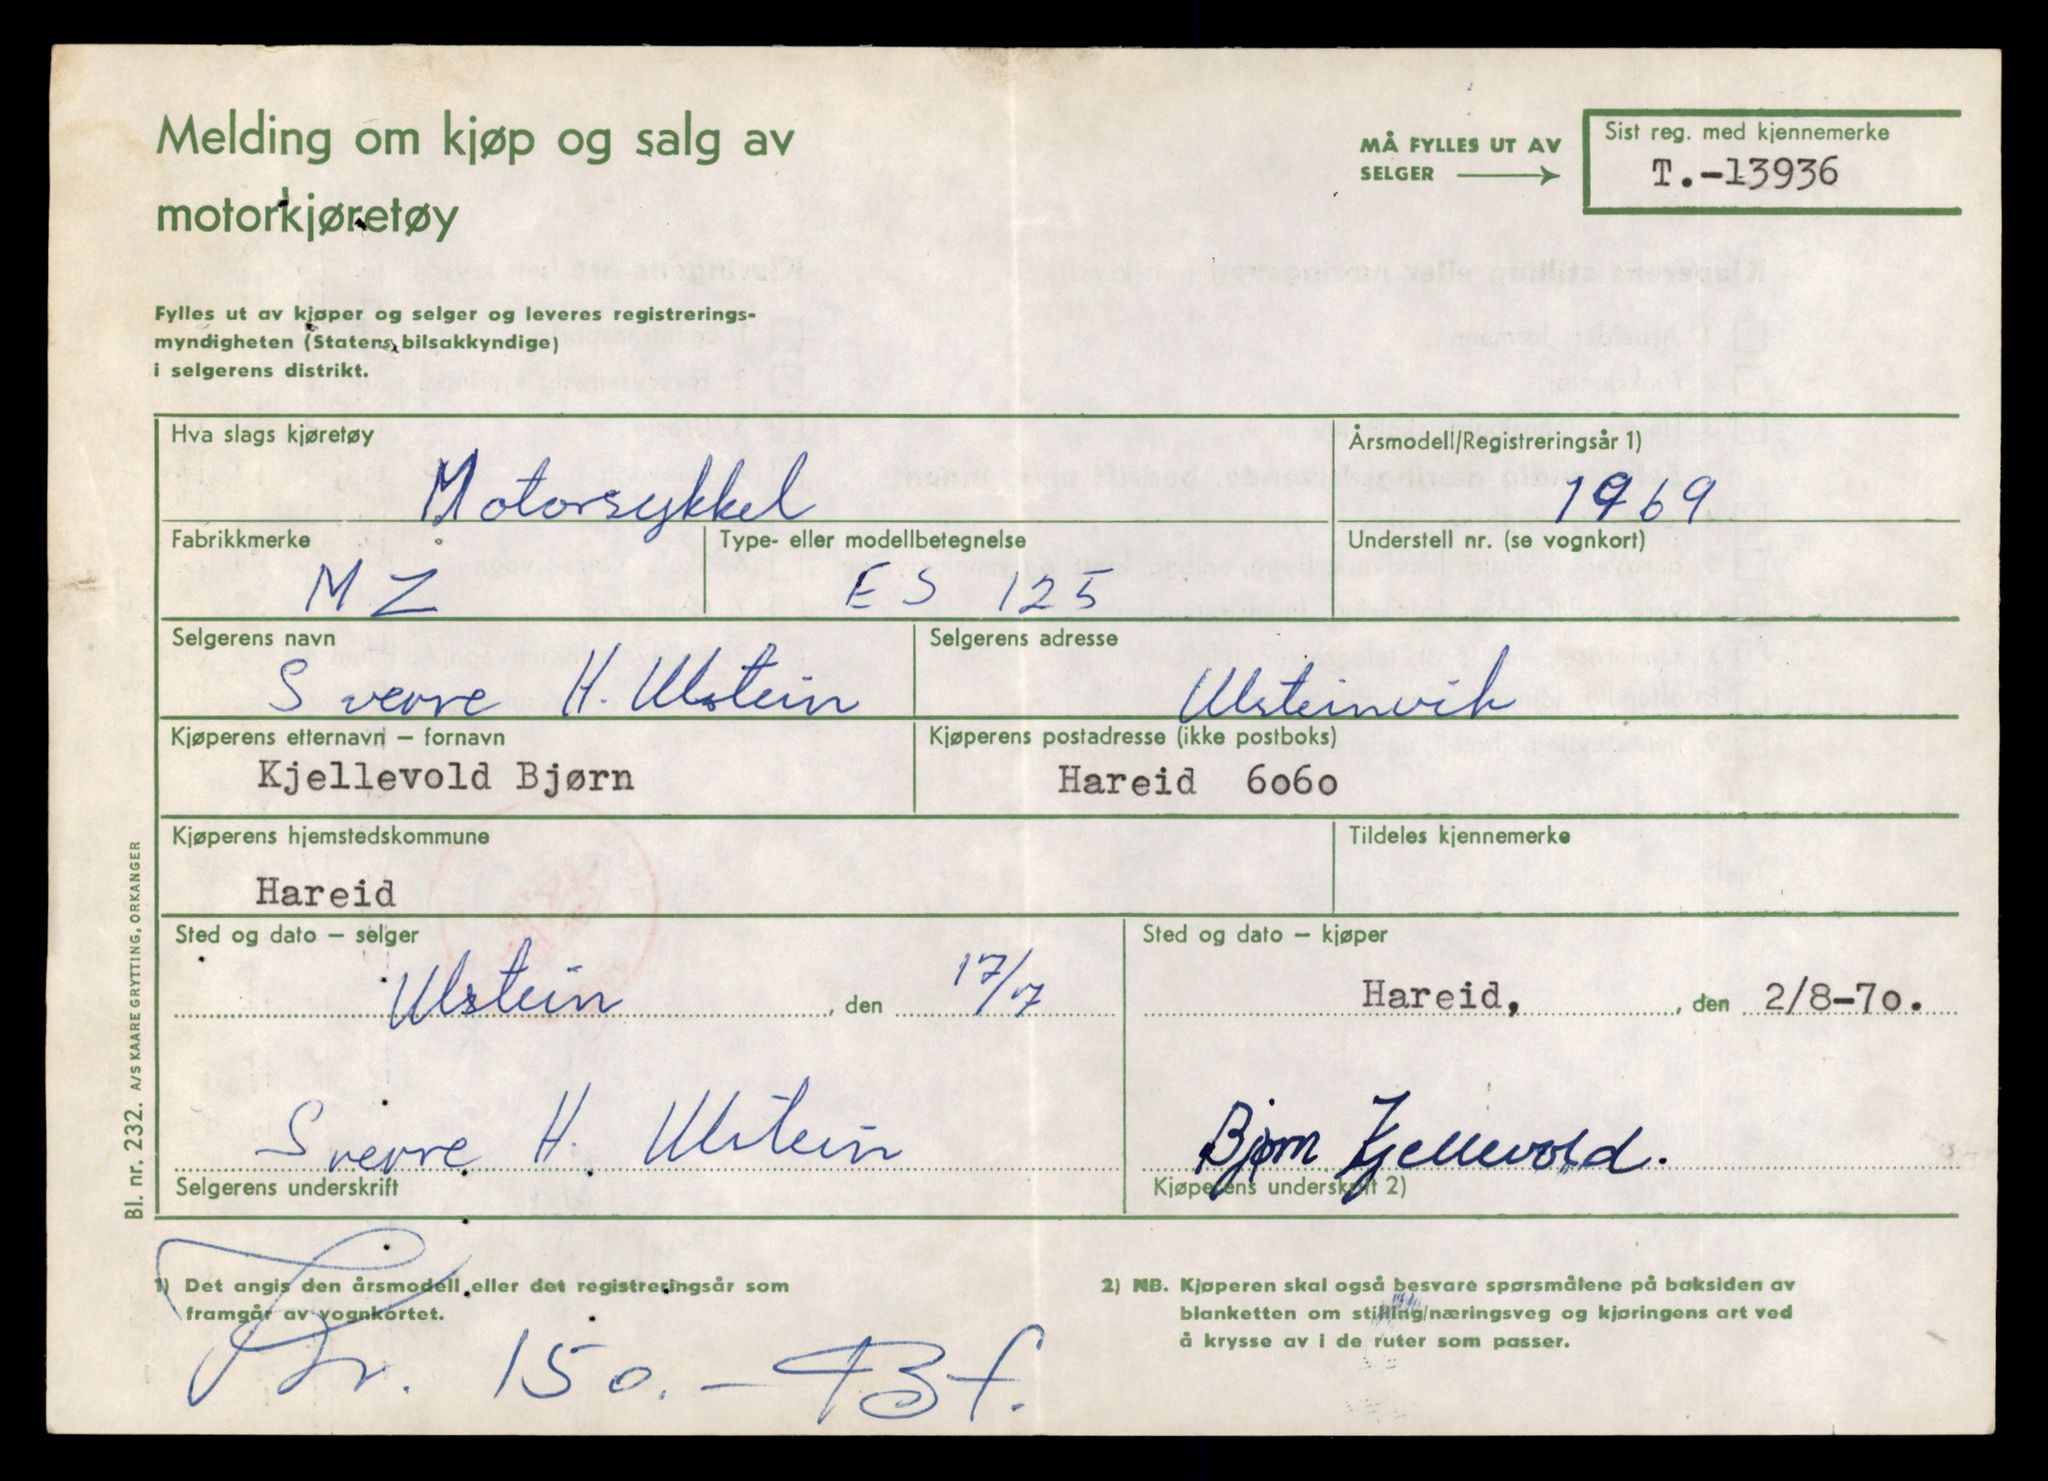 Melding om kjøp og salg av
motorkjøretøy
MÅ FYLLES UT AV
SELGER
Sist reg. med kjennemerke
T.-13936
Fylles ut av kjøper og selger og leveres registrerings-
myndigheten (Statens bilsakkyndige)
i selgerens distrikt.
Hva slags kjøretøy
Motorsykkel
Årsmodell/Registreringsår 1)
1969
Fabrikkmerke
MZ
Type- eller modellbetegnelse
ES 125
Understell nr. (se vognkort)
Selgerens navn
Sverre H. Ulstein
Selgerens adresse
Ulsteinvik
Kjøperens etternavn – fornavn
Kjellevold Bjørn
Kjøperens postadresse (ikke postboks)
Hareid 6060
Kjøperens hjemstedskommune
Hareid
Tildeles kjennemerke
Sted og dato – selger
Ulstein, den 17/7
Sted og dato – kjøper
Hareid, , den 2/8-70.
Sverre H. Ulstein
Selgerens underskrift
Bjørn Kjellevold.
Kjøperens underskrift 2)
Bl. nr. 232. A/S KAARE GRYTTING, ORKANGER
1) Det angis den årsmodell eller det registreringsår som
framgår av vognkortet.
2) NB. Kjøperen skal også besvare spørsmålene på baksiden av
blanketten om stilling/næringsveg og kjøringens art ved
å krysse av i de ruter som passer.
Kr. 150.-